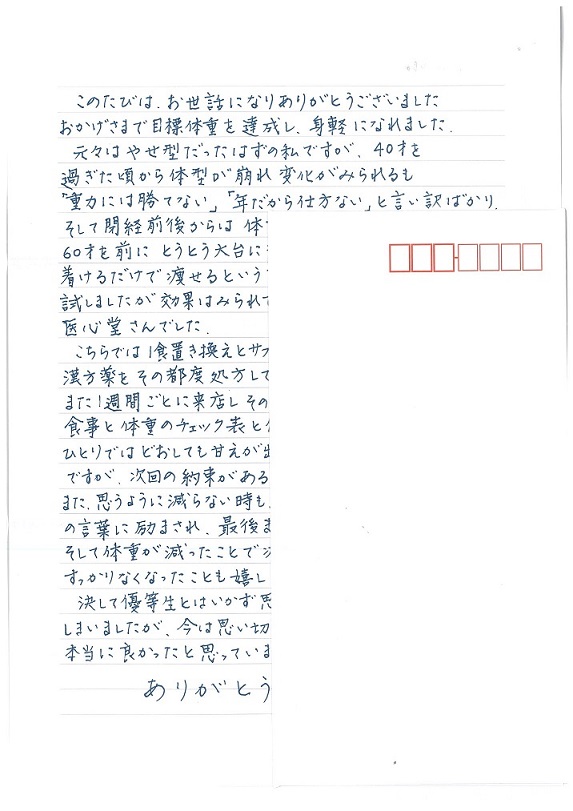 このたびは、お世話になりありがとうございました
おかげさまで目標体重を達成し、身軽になれました。
元々はやせ型だったはずの私ですが、40才を
過ぎた頃から体型が崩れ変化がみられるも
「重力には勝てない」「年だから仕方ない」と言い訳ばかり、
そして閉経前後からは体
60才を前にとうとう大台に
着けるだけで痩せるという
試しましたが効果はみられ
医心堂さんでした。
こちらでは1食置き換えとサ
漢方薬をその都度処方して
また1週間ごとに来店しその
食事と体重のチェック表と
ひとりではどおしても甘えが
ですが、次回の約束がある
また、思うように減らない時も、
の言葉に励まされ、最後ま
そして体重が減ったことで
すっかりなくなったことも嬉し
決して優等生とはいかず思
しまいましたが、今は思い切
本当に良かったと思っていま
ありがとう